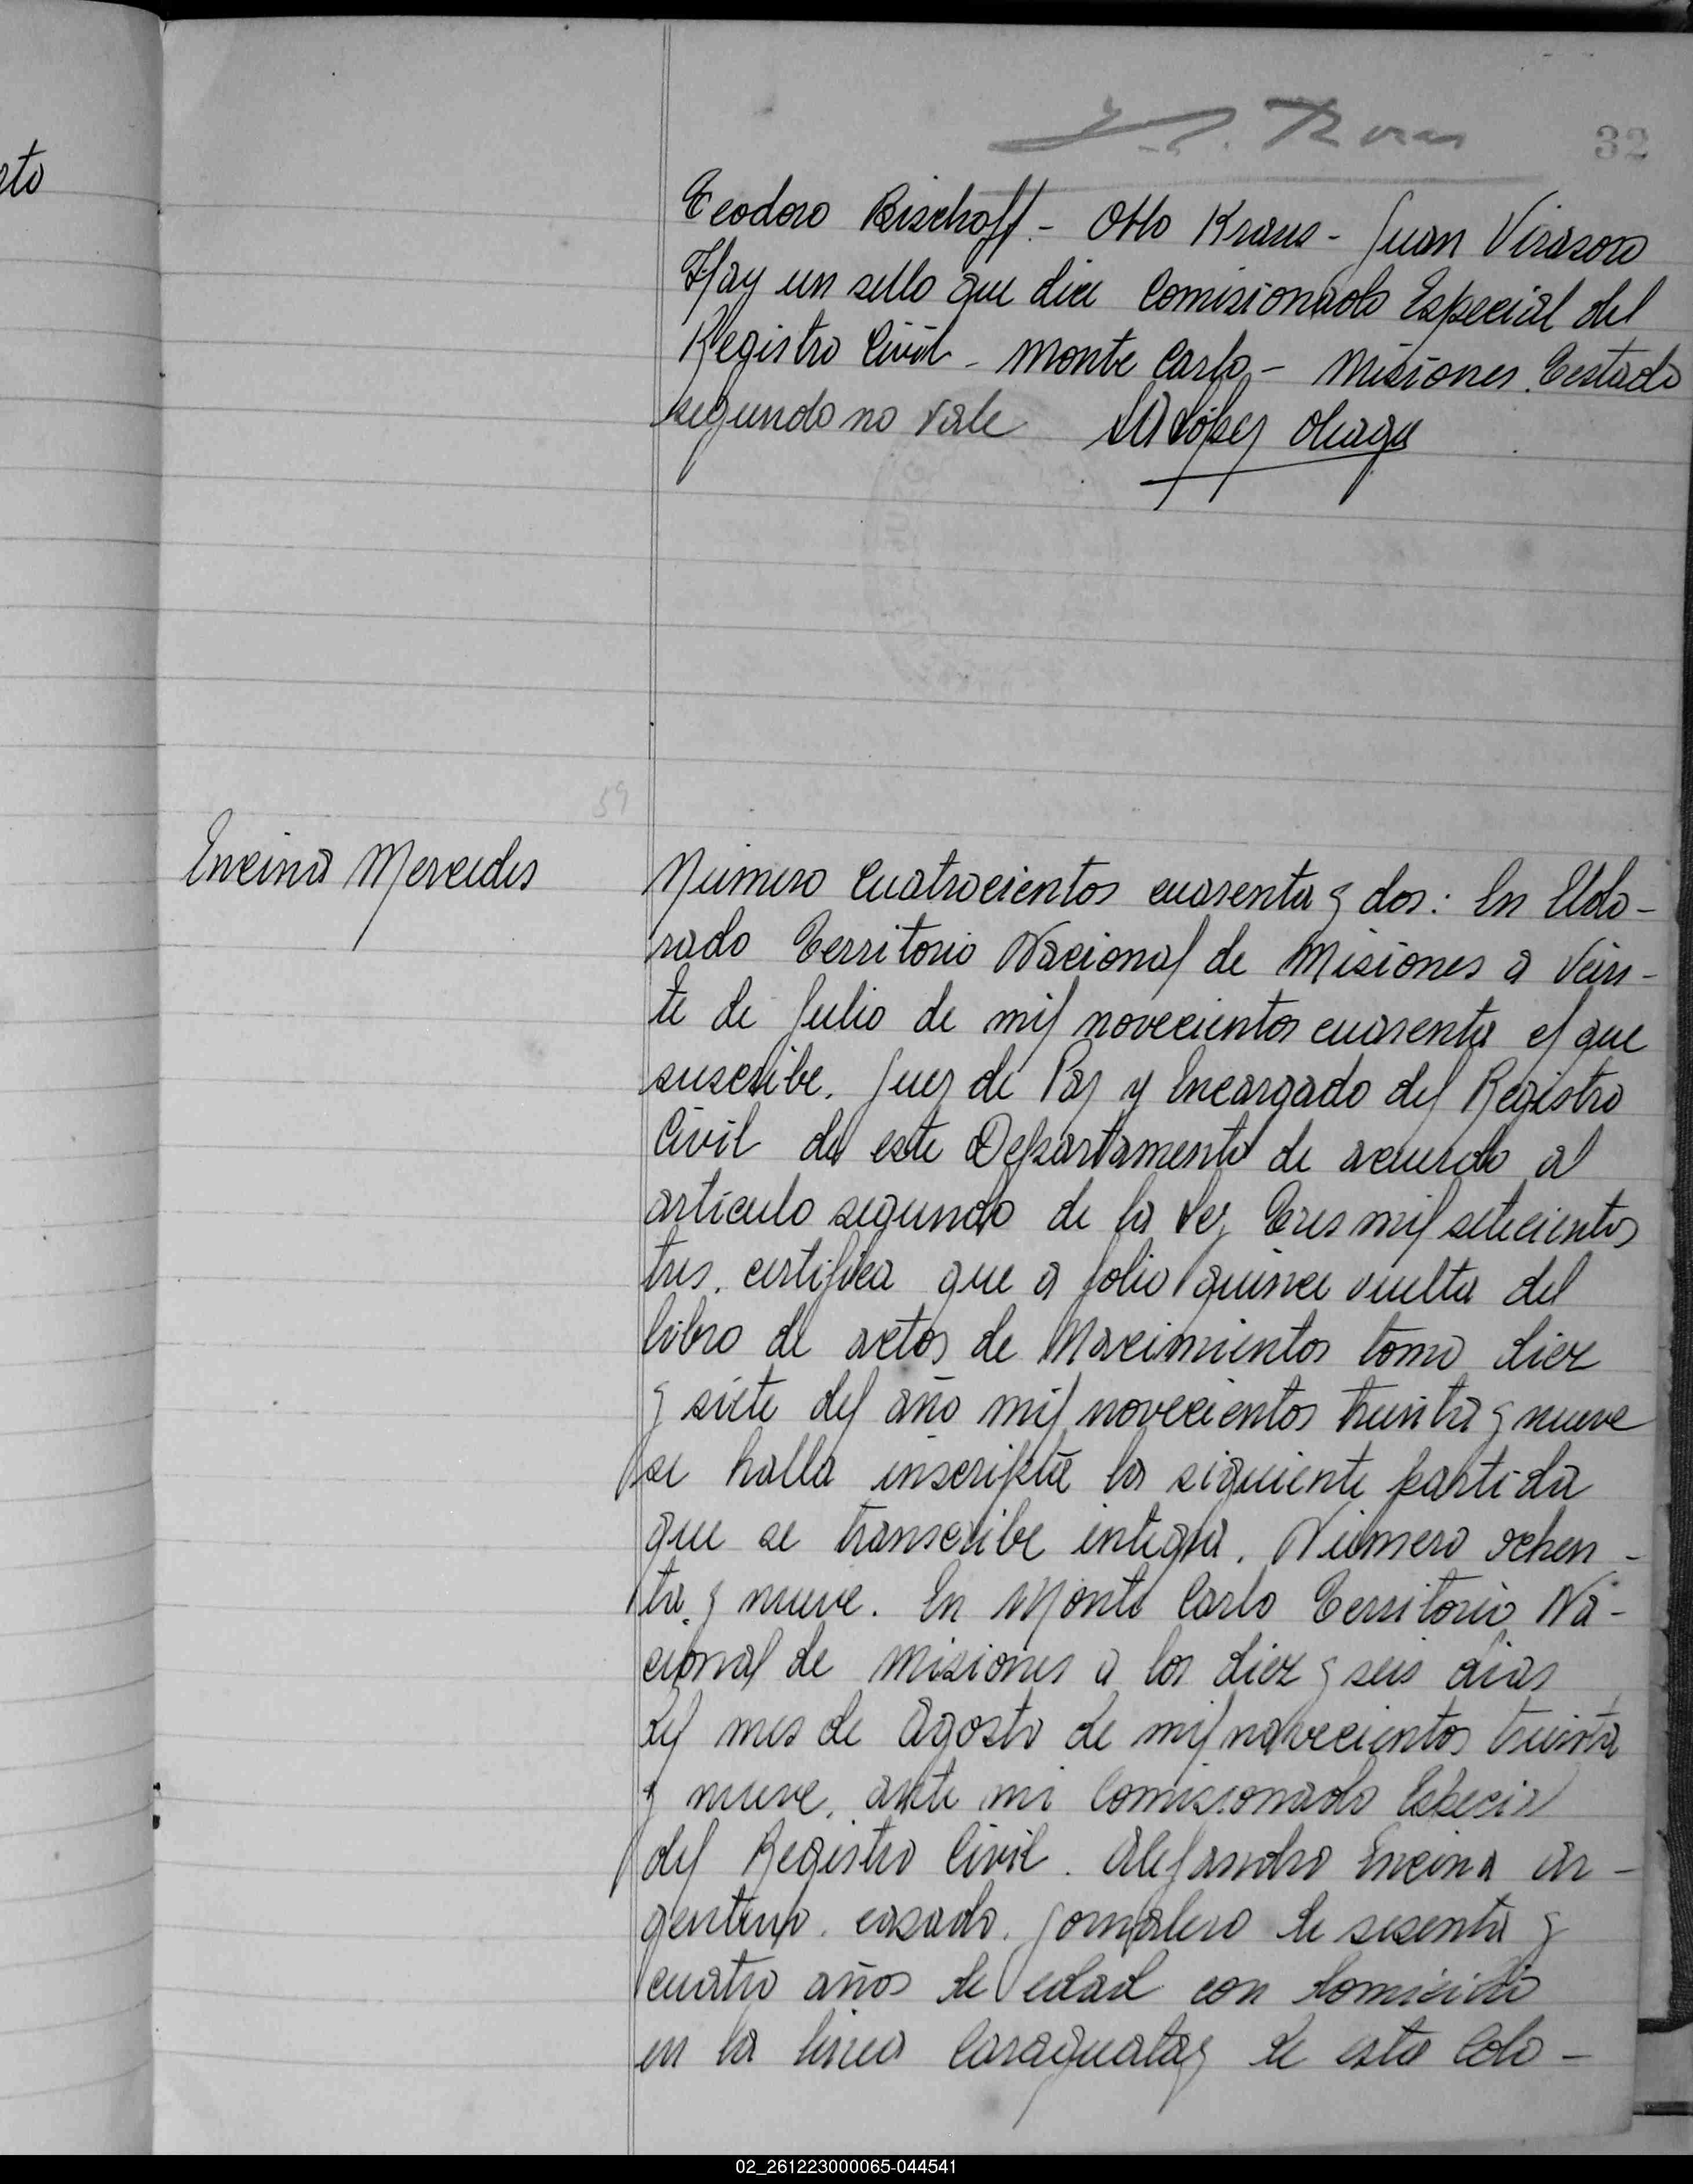 32
Teodoro Bischoff. - Otto Kraus - Juan Virasoro
Hay un sello que dice Comisionado Especial del
Registro Civil - Monte Carlo - Misiones. Testado
segundo no vale
59
Encina Mercedes
Número Cuatrocientos cuarenta y dos: En Eldo-
rado Territorio Nacional de Misiones a Vein-
te de Julio de mil novecientos cuarenta el que
suscribe. Juez de Paz y Encargado del Registro
Civil de este Departamento de acuerdo al
artículo segundo de la Ley Tres mil setecientos
tres. certifica que a folio quince vuelta del
libro de actos de Nacimientos tomo diez
y siete del año mil novecientos treinta y nueve
se halla inscripta la siguiente partida
que se transcribe integra. Número ochen-
ta y nueve. En Monte Carlo Territorio Na-
cional de Misiones a los diez y seis dias
del mes de Agosto de mil novecientos treinta
y nueve. ante mi Comisionado Especial
del Registro Civil. Alejandro Encina ar-
gentino. casado. jornalero de sesenta y
cuatro años de edad con domicilio
en la linea Caraguatay de esta Colo-
02_261223000065-044541